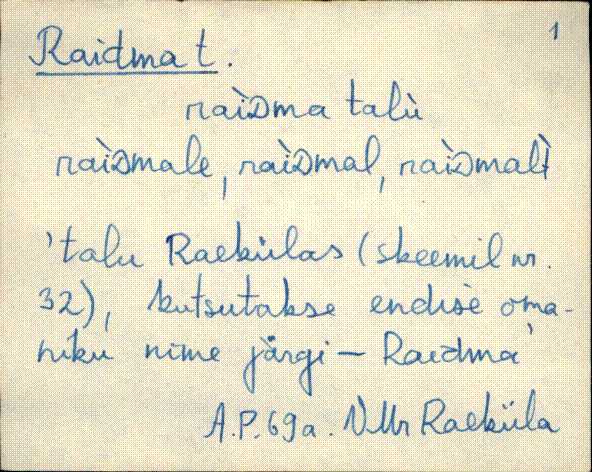 1
Raidma t.
raìᴅma talù
raìᴅmale, raìᴅmal, raìᴅmalt̀
'talu Raekülas (skeemil nr.
32), kutsutakse endise oma-
niku nime järgi – Raidma'
A.P. 69 a. VMr Raeküla